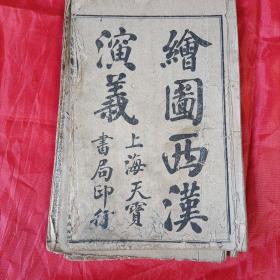 繪圖西漢
演義
上海天寶
書局印行